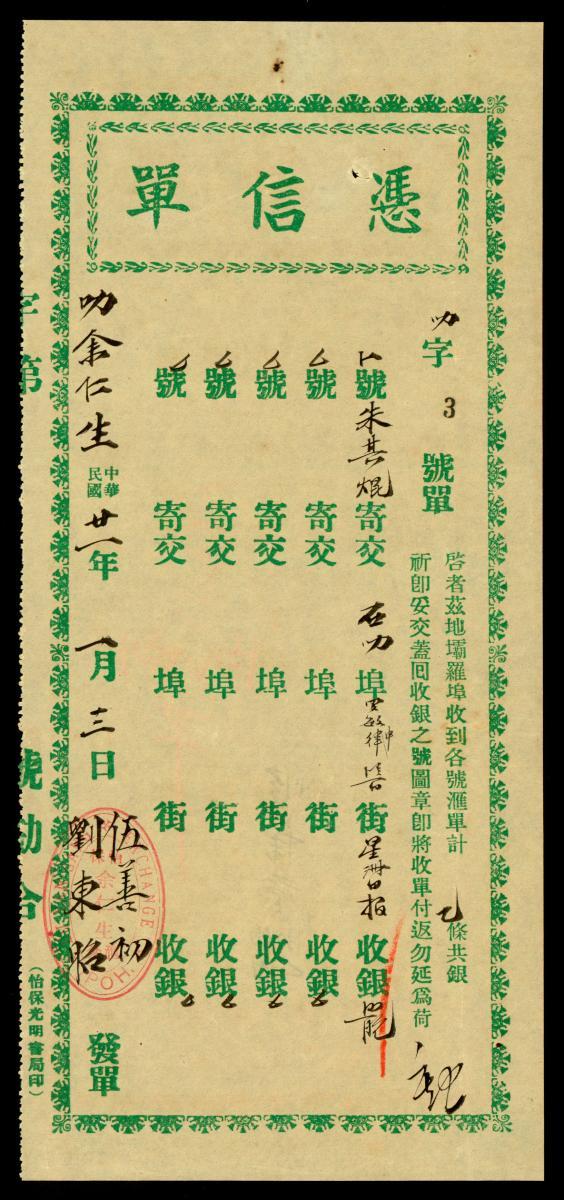 憑信單
叻字3號單
啓者茲地壩羅埠收到各號滙單計 條共銀
祈卽妥交蓋囘收銀之號圖章卽將收單付返勿延爲荷
號朱其焜寄交在叻埠 街星洲日报收銀
號寄交埠街收銀
號寄交埠街收銀
號寄交埠街收銀
號寄交埠街收銀
叻余仁生中華民國廿一年一月十三日伍善初劉東昭發單
余仁生
EXCHANGE
IPOH.
字第 號勘合
(怡保光明書局印)